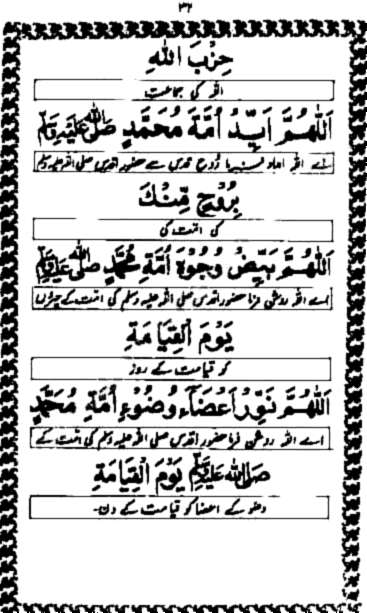 ۳۲
حِزْبَ اللهِ
اللہ کی جماعت
اَللّٰهُمَّ اَيِّدْ اُمَّةَ مُحَمَّدٍ صَلَّى اللهُ عَلَيْهِ وَسَلَّمَ
اے اللہ امداد فرما روح قدس سے حضور اقدس صلی اللہ علیہ وسلم
بِرُوْحٍ مِّنْكَ
کی امت کی
اَللّٰهُمَّ بَيِّضْ وُجُوْهَ اُمَّةِ مُحَمَّدٍ صَلَّى اللهُ عَلَيْهِ وَسَلَّمَ
اے اللہ روشن فرما حضور اقدس صلی اللہ علیہ وسلم کی امت کے چہروں
يَوْمَ الْقِيَامَةِ
کو قیامت کے روز
اَللّٰهُمَّ نَوِّرْ اَعْضَآءَ وُضُوْءِ اُمَّةِ مُحَمَّدٍ
اے اللہ روشن فرما حضور اقدس صلی اللہ علیہ وسلم کی امت کے
صَلَّى اللهُ عَلَيْهِ وَسَلَّمَ يَوْمَ الْقِيَامَةِ
وضو کے اعضا کو قیامت کے دن۔